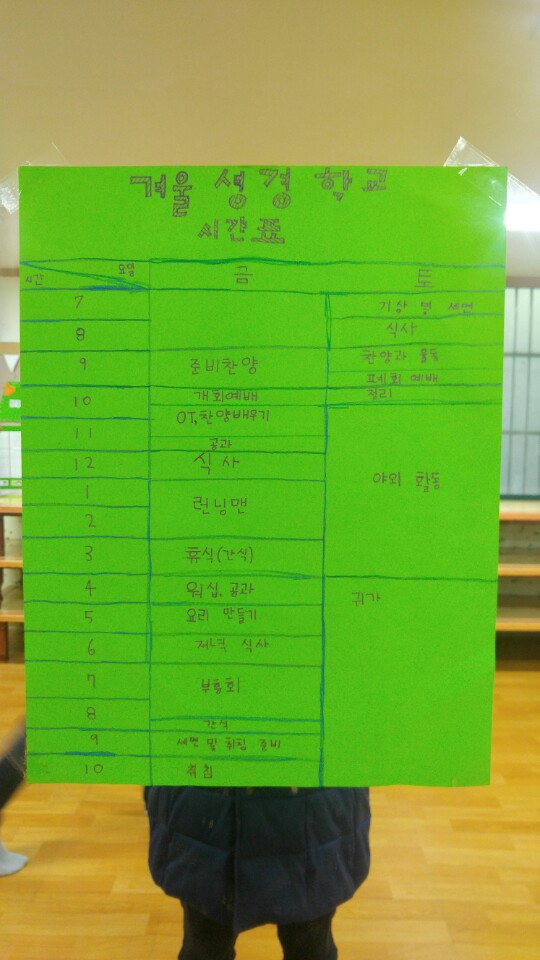 겨울 성경 학교
시간표
시간 요일 금 토
7 기상 및 세면
8 식사
9 준비찬양 찬양과 율동
폐회 예배
10 개회예배 정리
OT, 찬양배우기
11
공과
12 식사 야외 활동
1
런닝맨
2
3 휴식(간식)
4 워십, 공과 귀가
5 요리 만들기
6 저녁 식사
7 부흥회
8
간식
9 세면 및 취침 준비
10 취침